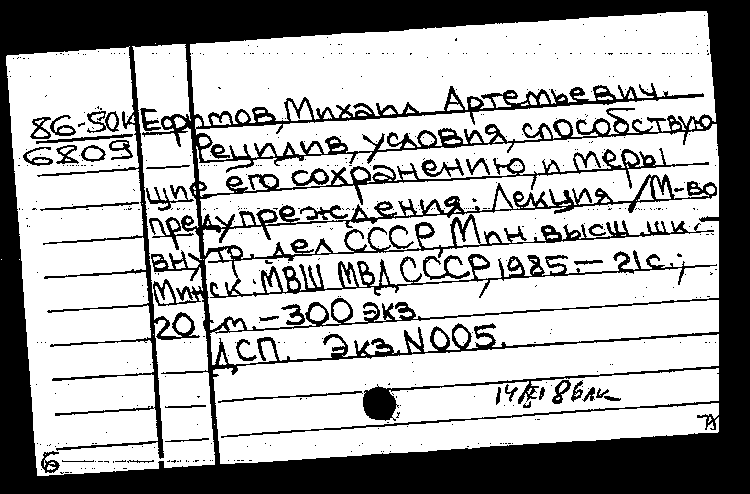 86-50к Ефимов, Михаил Артемьевич.
6809 Рецидив, условия, способствую
щие его сохранению, и меры
предупреждения: Лекция /М-во
внутр. дел СССР, Мин. высш. шк. –
Минск: МВШ МВД СССР, 1985. – 21 с.;
20 см. – 300 экз.
ДСП. Экз. N 005.
14/XI 86
б